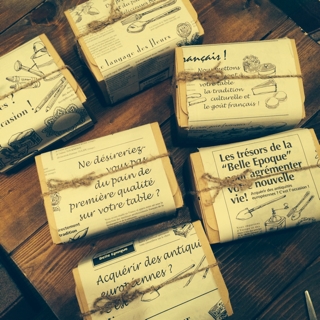 langage des fleurs
casion !
français !
votre table
la tradition
culturelle et
le goût français !
Ne désireriez-
vous pas
du pain de
première qualité
sur votre table ?
Les trésors de la
"Belle Epoque"
agrémenter
nouvelle
vie!
Acquérir des antiqui
européennes ?